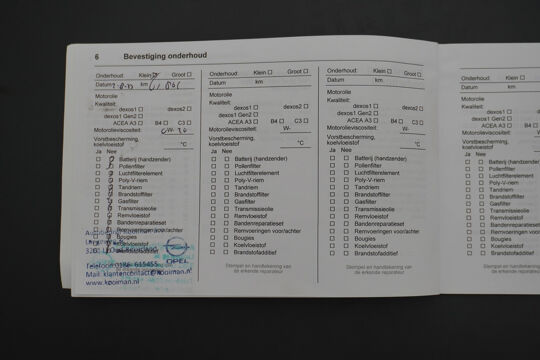 6 Bevestiging onderhoud
Onderhoud: Klein ☐ Groot ☐
Datum km
Motorolie
Kwaliteit:
dexos1 ☐ dexos2 ☐
dexos1 Gen2 ☐
ACEA A3 ☐ B4 ☐ C3 ☐
Motorolieviscositeit:
Vorstbescherming,
koelvloeistof °C
Ja Nee
☐ ☐ Batterij (handzender)
☐ ☐ Pollenfilter
☐ ☐ Luchtfilterelement
☐ ☐ Poly-V-riem
☐ ☐ Tandriem
☐ ☐ Brandstoffilter
☐ ☐ Gasfilter
☐ ☐ Transmissieolie
☐ ☐ Remvloeistof
☐ ☐ Bandenreparatieset
☐ ☐ Remvoeringen voor/achter
☐ ☐ Bougies
☐ ☐ Koelvloeistof
OPEL
Telefoon 0186 - 615455
Mail: klantencontact@kooiman.nl
www.kooiman.nl
Onderhoud: Klein ☐ Groot ☐
Datum km
Motorolie
Kwaliteit:
dexos1 ☐ dexos2 ☐
dexos1 Gen2 ☐
ACEA A3 ☐ B4 ☐ C3 ☐
Motorolieviscositeit: W-
Vorstbescherming,
koelvloeistof °C
Ja Nee
☐ ☐ Batterij (handzender)
☐ ☐ Pollenfilter
☐ ☐ Luchtfilterelement
☐ ☐ Poly-V-riem
☐ ☐ Tandriem
☐ ☐ Brandstoffilter
☐ ☐ Gasfilter
☐ ☐ Transmissieolie
☐ ☐ Remvloeistof
☐ ☐ Bandenreparatieset
☐ ☐ Remvoeringen voor/achter
☐ ☐ Bougies
☐ ☐ Koelvloeistof
☐ ☐ Brandstofadditief
Stempel en handtekening van
de erkende reparateur
Onderhoud: Klein ☐ Groot ☐
Datum km
Motorolie
Kwaliteit:
dexos1 ☐ dexos2 ☐
dexos1 Gen2 ☐
ACEA A3 ☐ B4 ☐ C3 ☐
Motorolieviscositeit: W-
Vorstbescherming,
koelvloeistof °C
Ja Nee
☐ ☐ Batterij (handzender)
☐ ☐ Pollenfilter
☐ ☐ Luchtfilterelement
☐ ☐ Poly-V-riem
☐ ☐ Tandriem
☐ ☐ Brandstoffilter
☐ ☐ Gasfilter
☐ ☐ Transmissieolie
☐ ☐ Remvloeistof
☐ ☐ Bandenreparatieset
☐ ☐ Remvoeringen voor/achter
☐ ☐ Bougies
☐ ☐ Koelvloeistof
☐ ☐ Brandstofadditief
Stempel en handtekening van
de erkende reparateur
Onderhoud: Klein
Datum km
Motorolie
Kwaliteit:
dexos1 ☐
dexos1 Gen2 ☐
ACEA A3 ☐
Motorolieviscositeit:
Vorstbescherming,
koelvloeistof
Ja Nee
☐ ☐ Batterij (handzender)
☐ ☐ Pollenfilter
☐ ☐ Luchtfilterelement
☐ ☐ Poly-V-riem
☐ ☐ Tandriem
☐ ☐ Brandstoffilter
☐ ☐ Gasfilter
☐ ☐ Transmissieolie
☐ ☐ Remvloeistof
☐ ☐ Bandenreparatieset
☐ ☐ Remvoeringen
☐ ☐ Bougies
☐ ☐ Koelvloeistof
☐ ☐ Brandstofadditief
Stempel en
de erkende